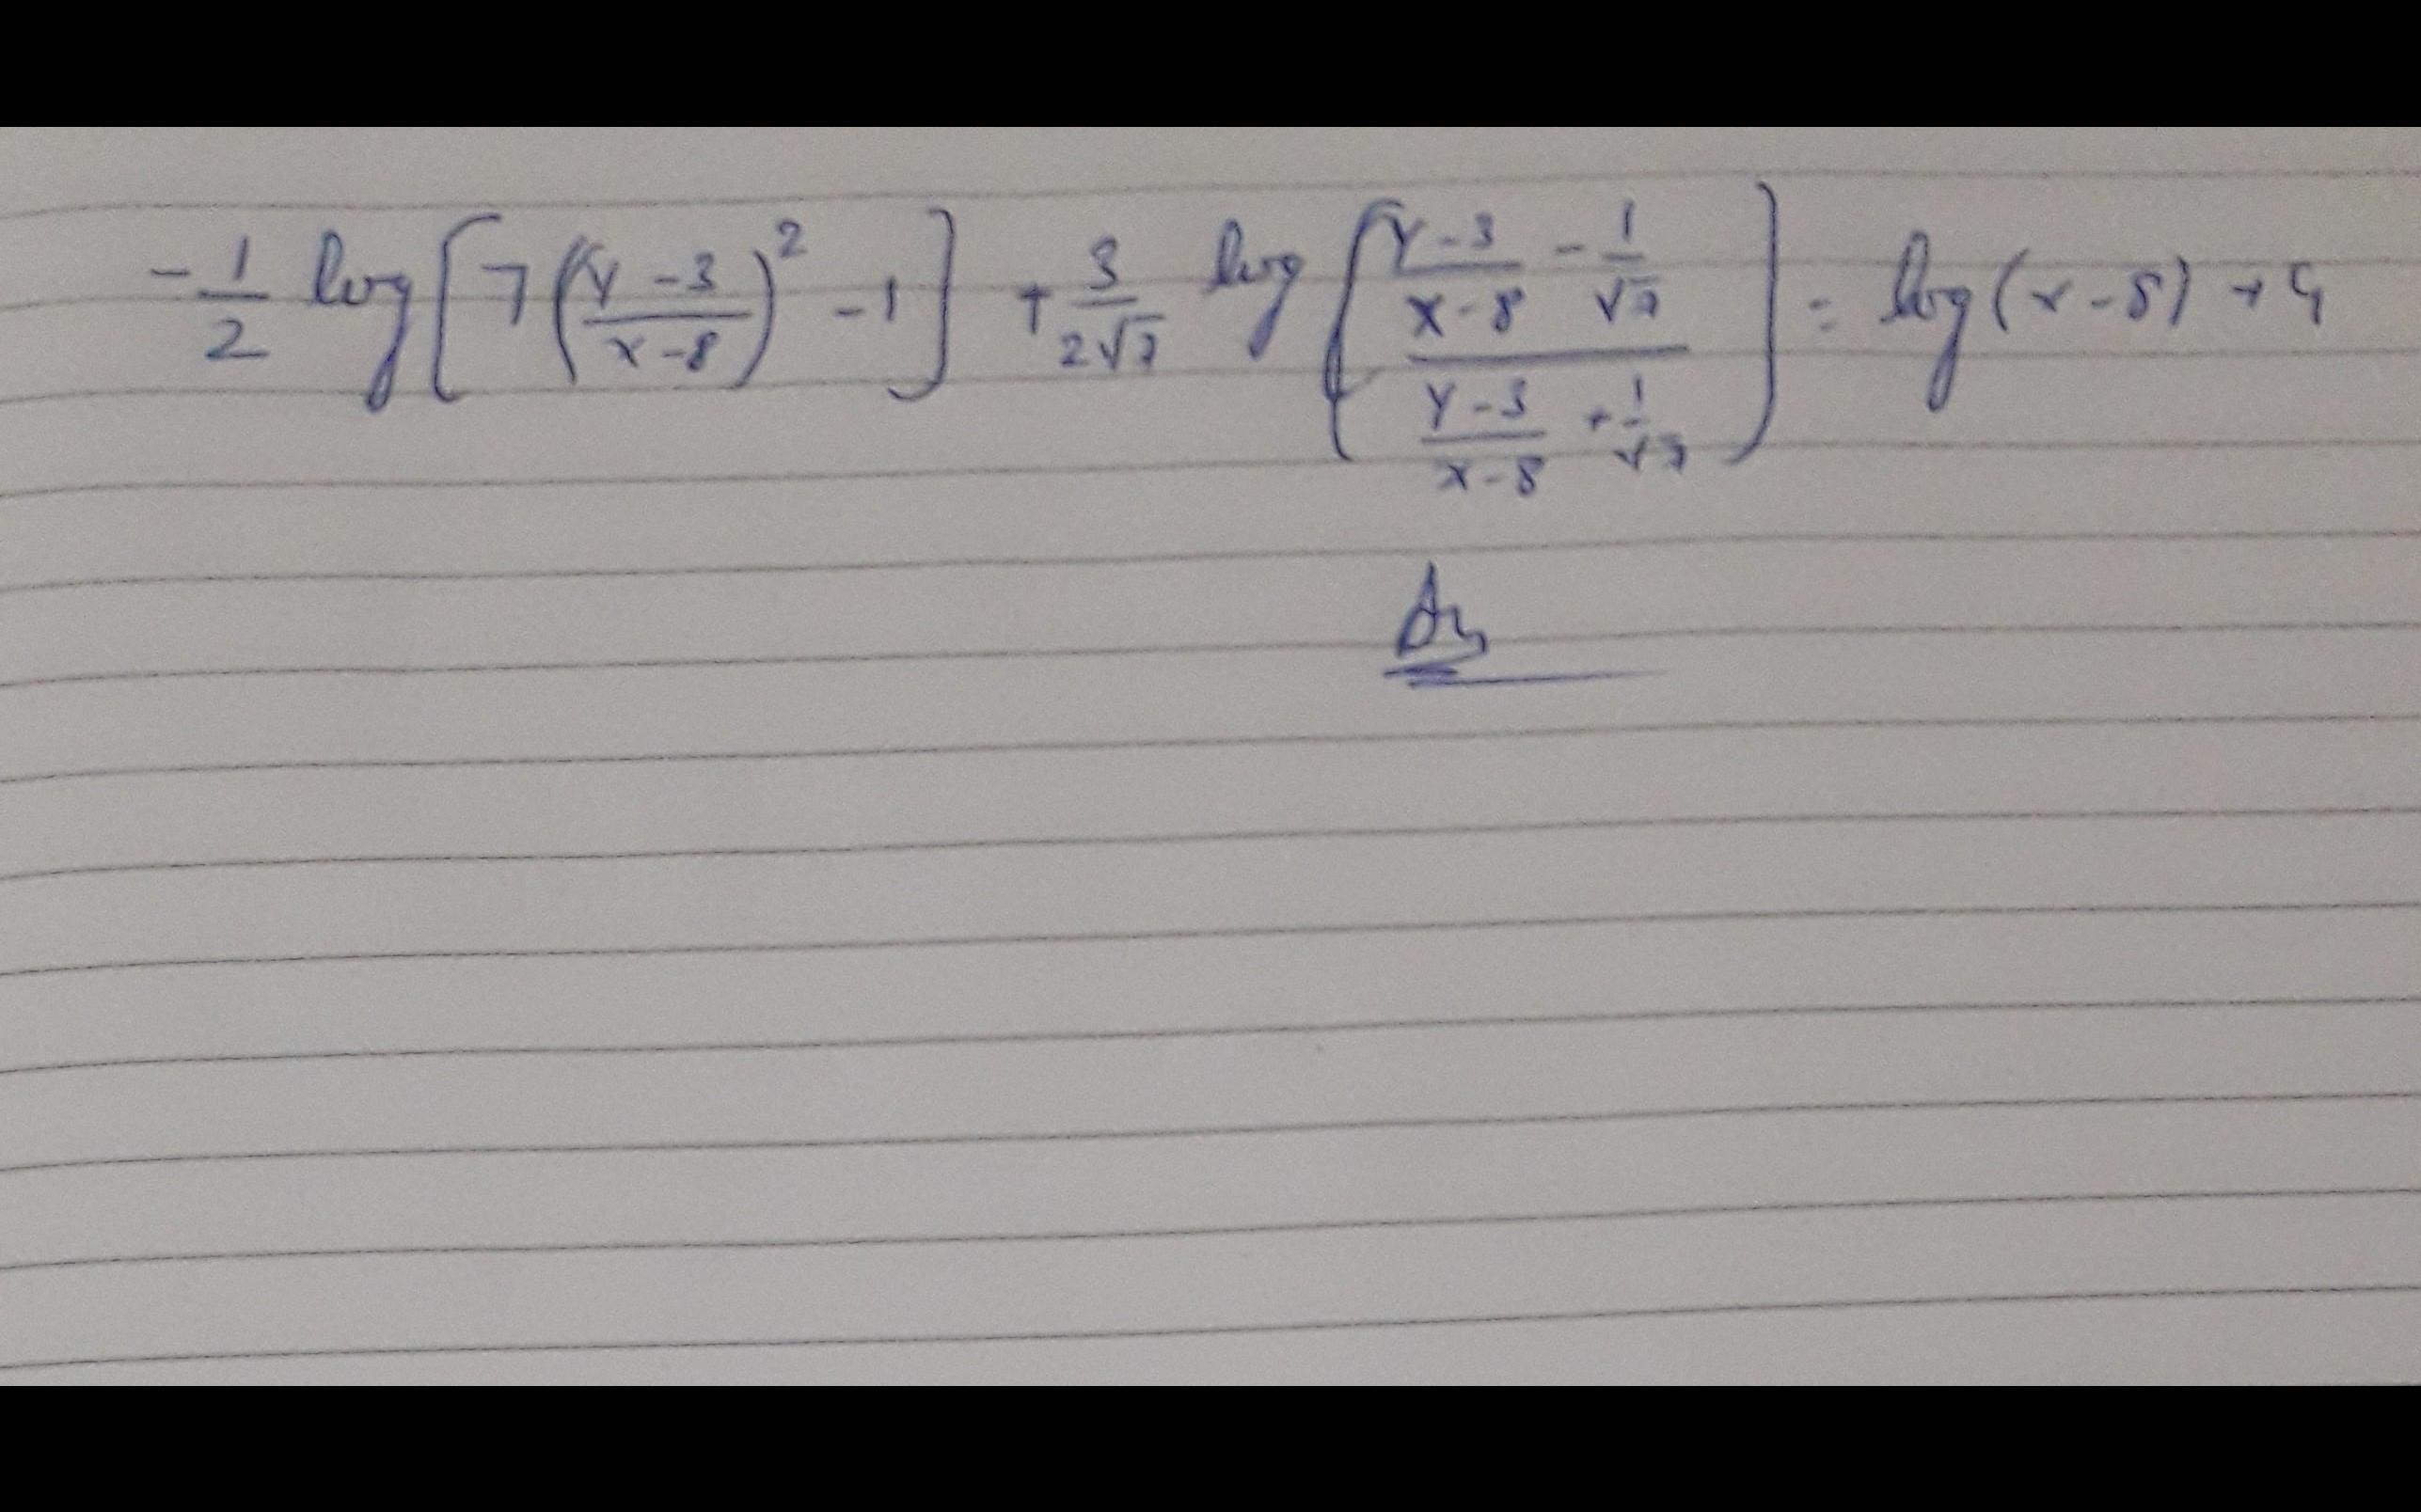 -1/2 log[7((y-3)/(x-8))² -1] + 3/(2√7) log[((y-3)/(x-8) - 1/√7)/((y-3)/(x-8) + 1/√7)] = log(x-8) + c₁
Ans